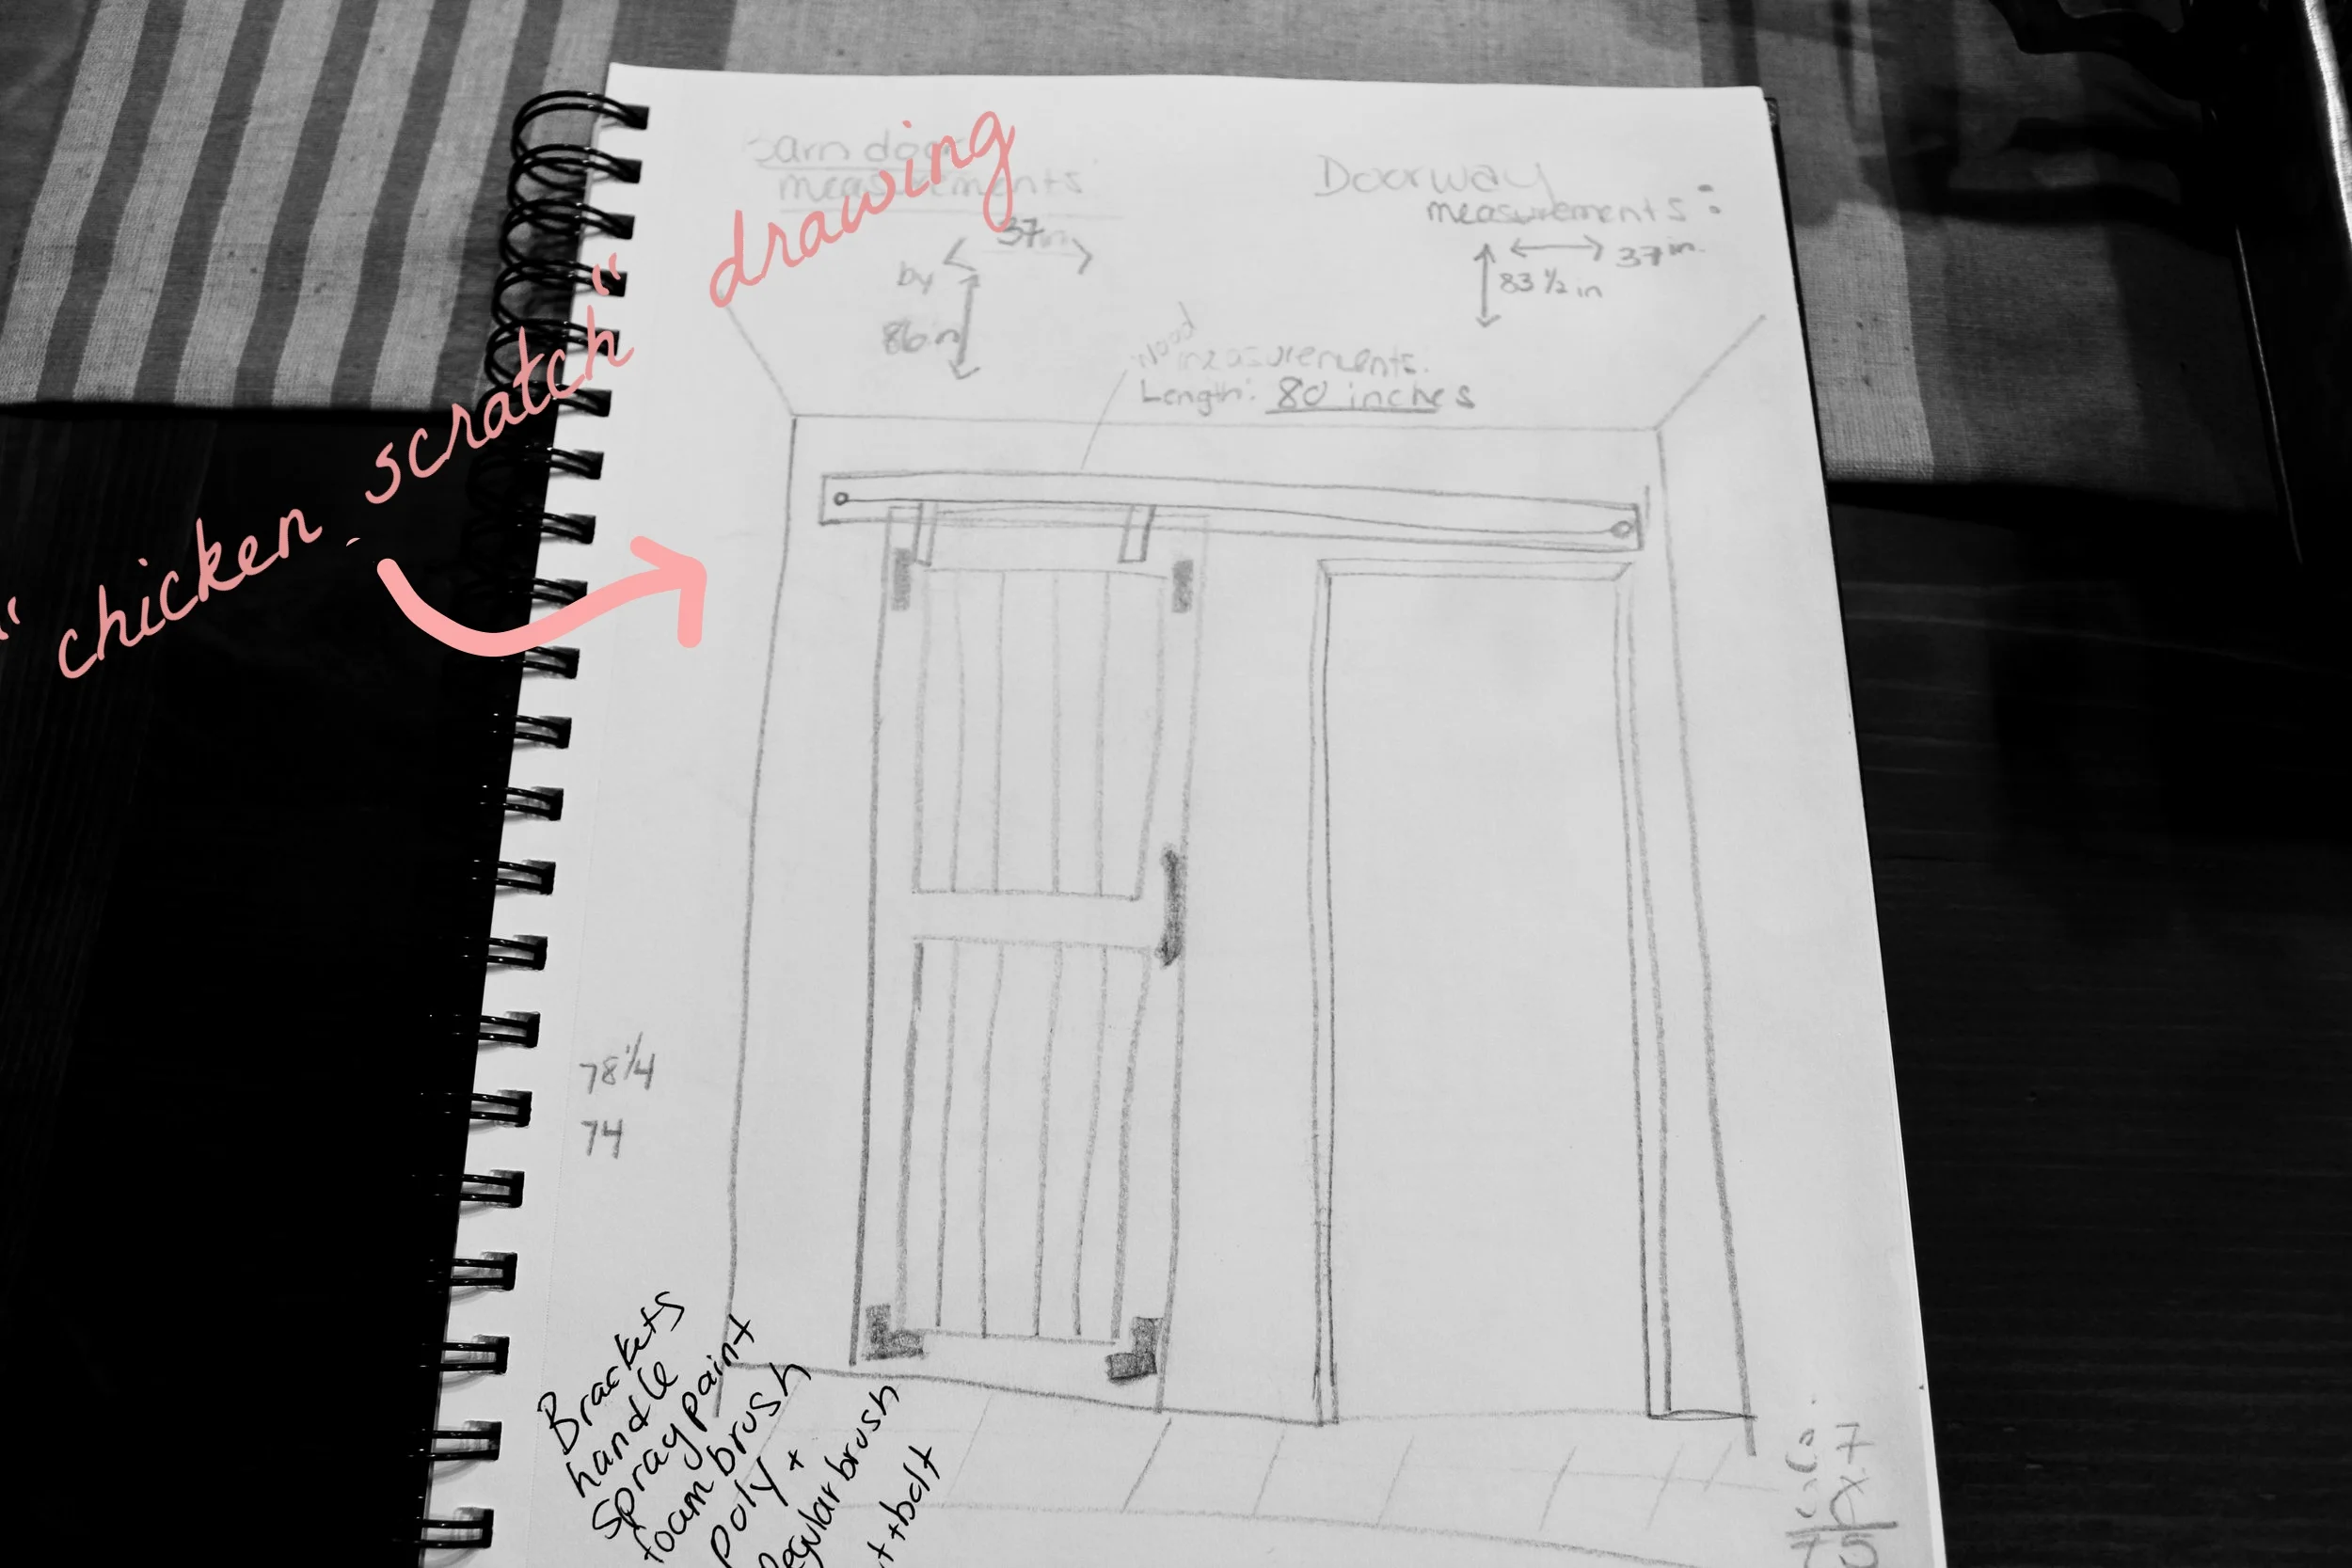 "chicken scratch" drawing
barn door
measurements:
37 in
by
86 in
Doorway
measurements:
37 in.
83 1/2 in
Wood
measurements.
Length: 80 inches
78 1/4
74
Brackets
handle
Spray paint
foam brush
poly +
Regular brush
+ bolt
75